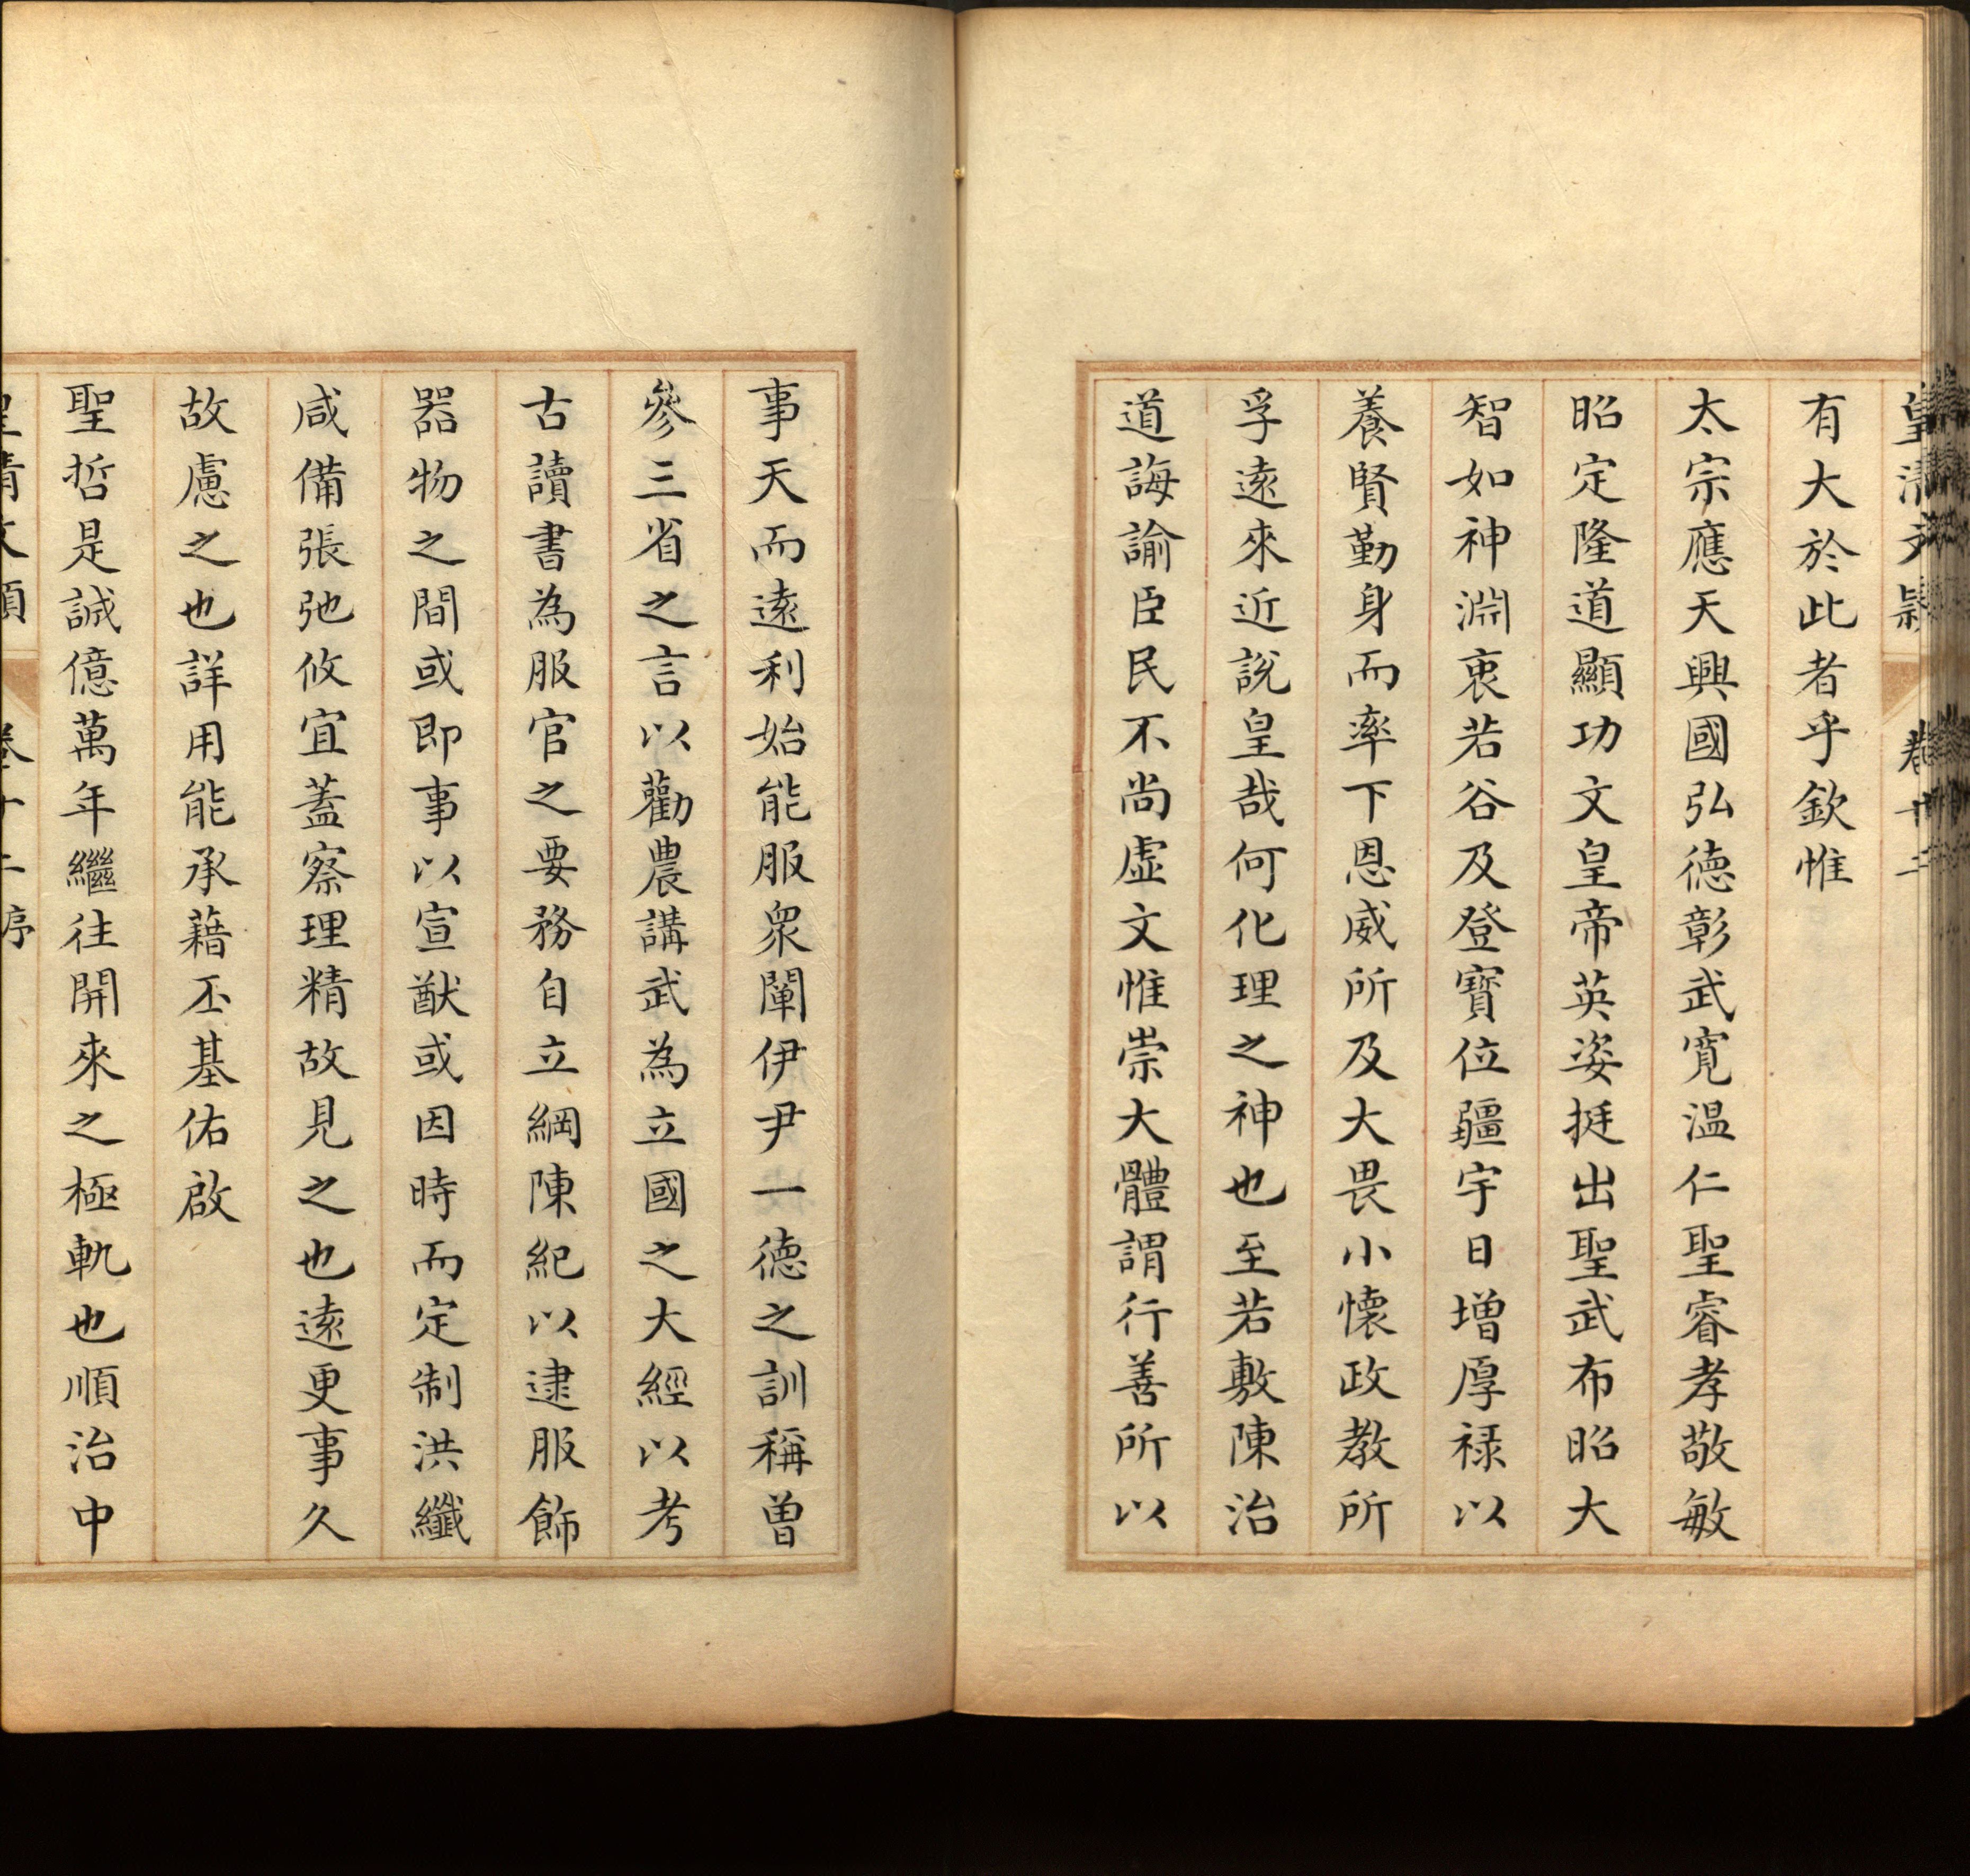 皇清文穎 卷十二
有大於此者乎欽惟
太宗應天興國弘德彰武寬溫仁聖睿孝敬敏
昭定隆道顯功文皇帝英姿挺出聖武布昭大
智如神淵衷若谷及登寶位疆宇日增厚祿以
養賢勤身而率下恩威所及大畏小懷政教所
孚遠來近說皇哉何化理之神也至若敷陳治
道誨諭臣民不尚虛文惟崇大體謂行善所以
事天而遠利始能服衆闡伊尹一德之訓稱曽
參三省之言以勸農講武為立國之大經以考
古讀書為服官之要務自立綱陳紀以逮服飾
器物之間或即事以宣猷或因時而定制洪纖
咸備張弛攸宜蓋察理精故見之也遠更事久
故慮之也詳用能承藉丕基佑啟
聖哲是誠億萬年繼往開來之極軌也順治中
皇清文穎 卷十二序